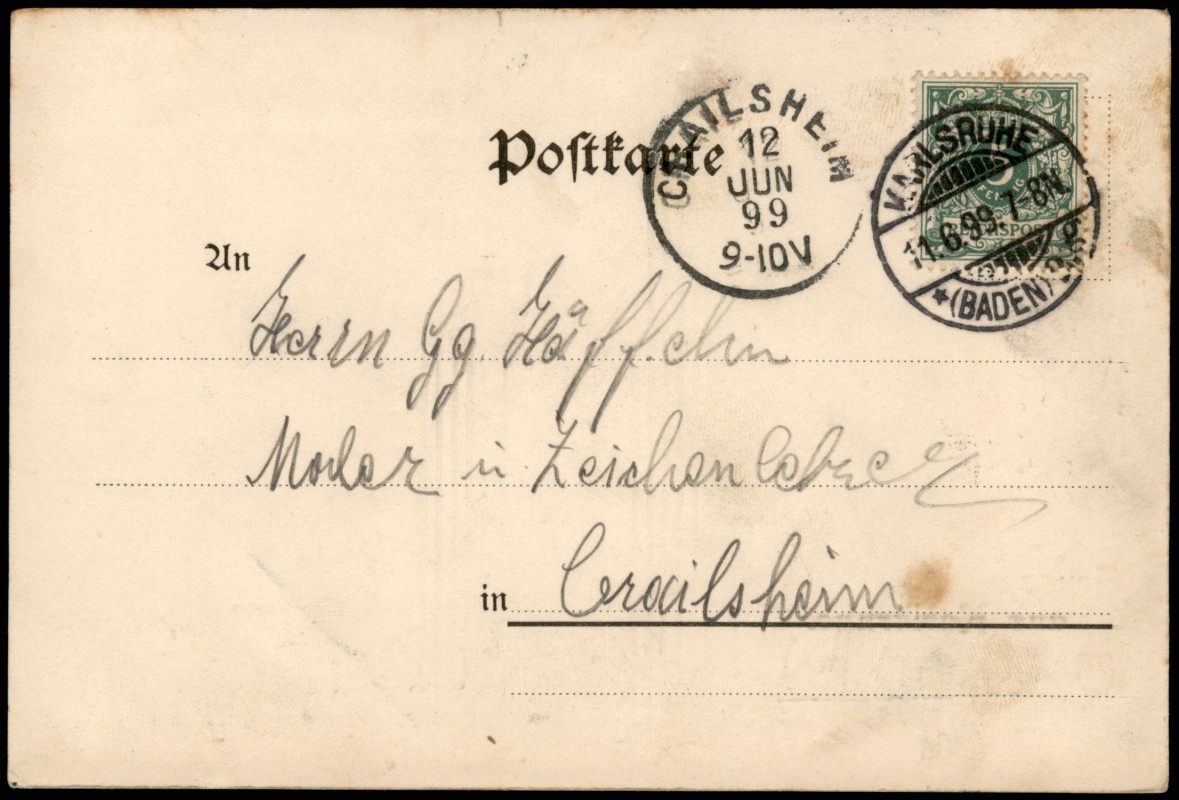 Postkarte
CRAILSHEIM
12
JUN
99
9-10V
KARLSRUHE
11.6.99.7-8N.
*(BADEN)
PFENNIG
REICHSPOST
An
Herrn Gg. Häffelin
Maler u Zeichenlehrer
in Crailsheim